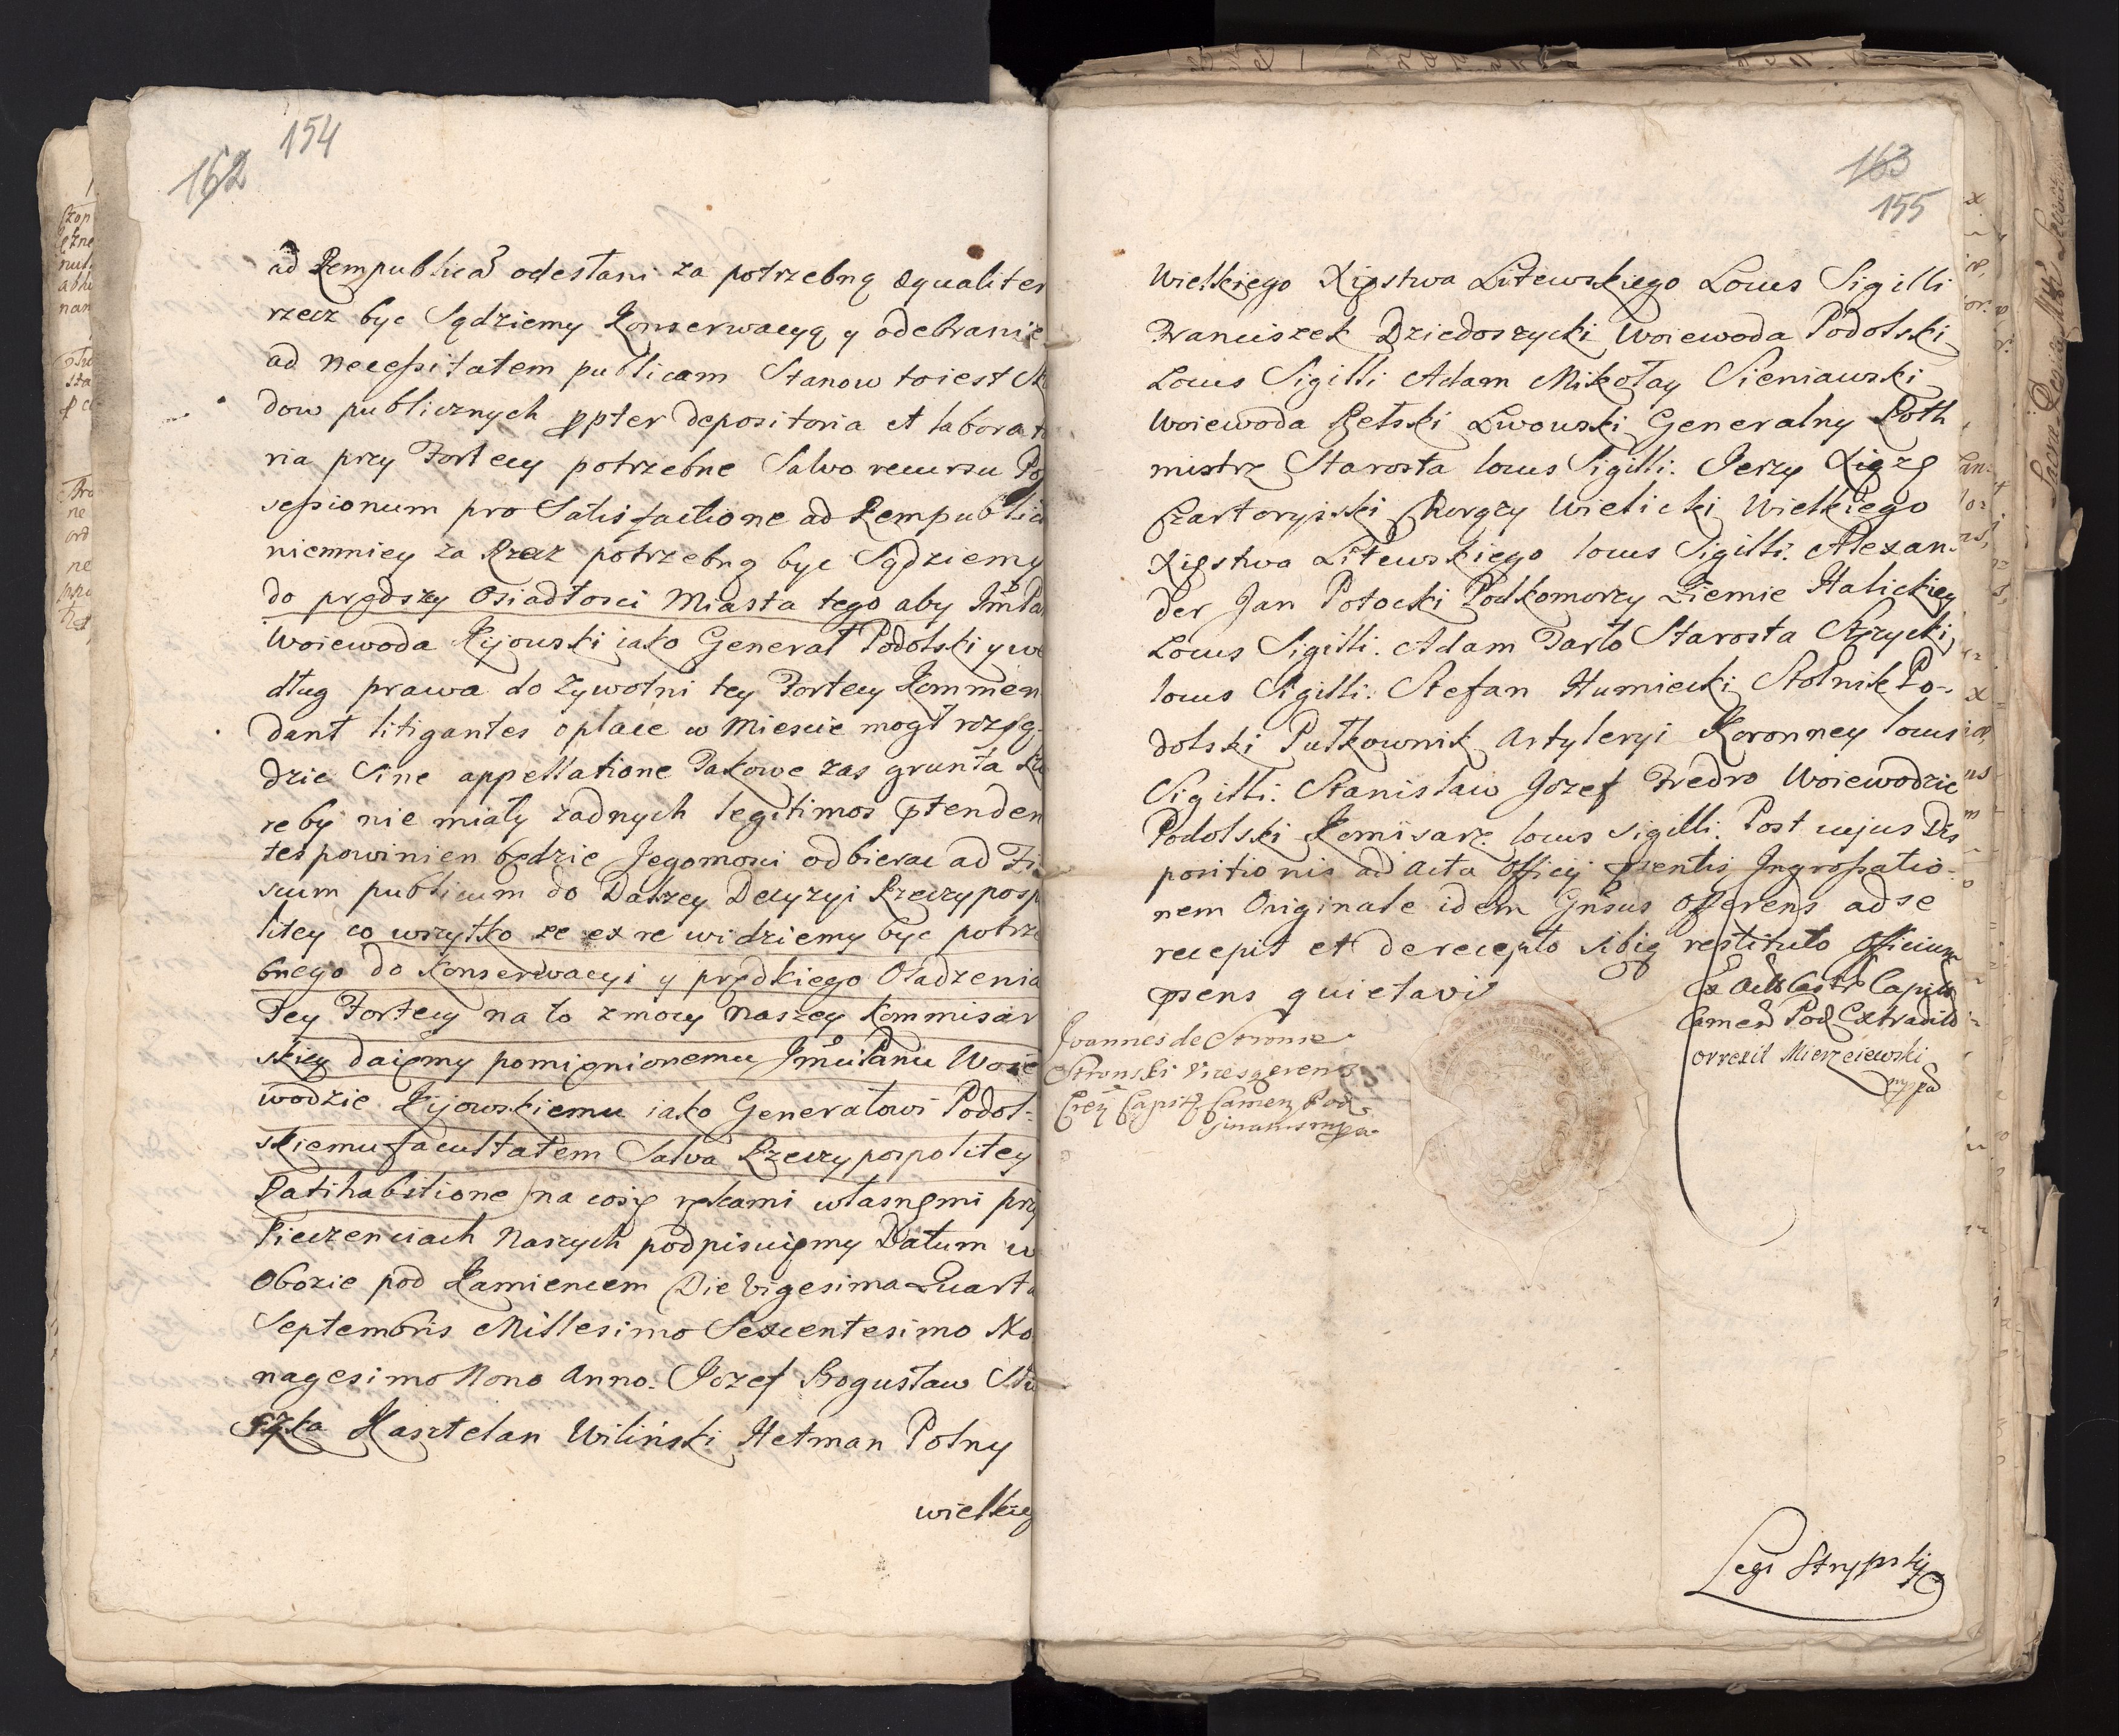 154
162
ad Rempublicã odesłani za potrzebną equaliter
rzecz byc Sądziemy Konserwacyą y odebranie
ad necessitatem publicam Stanow toiest
dow publicznych ꝓpter depositoria et labora
ria przy Fortecy potrzebne Salvo recursu
sessionum pro Satisfactione ad Rempublic
niemniey za Rzecz potrzebną byc Sądziemy
do prędszy Osiadłosci Miasta tego aby
Woiewoda Kijowski iako Generał Podolski y we
dług prawa dożywotni tey Fortecy Kommen
dant litigantes o place w Miescie mogł rozsą
dzic Sine appellatione Takowe zas grunta
reby nie miały żadnych legitimos ꝓtenden
tes powinien będzie Jegomosci odbierac ad Fi
scum publicum do Dalszey Decyzyi Rzeczyposp
litey co wszytko ze ex re widziemy byc potrze
bnego do Konserwacyi y prędkiego Osadzenia
Tey Fortecy na to z mocy Naszey Kommisar
skiey daiemy pomienionemu Jmci Panu Woie
wodzie Kijowskiemu iako Generałowi Podol-
skiemu facultatem Salva Rzeczypospolitey
Ratihabitione na cosię rękami własnęmi przy
Pieczenciach Naszych podpisuięmy Datum w
Obozie pod Kamiencem Die Vigesima Quarta
Septembris Millesimo Sexcentesimo No
nagesimo Nono Anno. Jozef Bogusław Słu
szka Kasztelan Wilinski Hetman Polny
wielkieg
163
155
Wielkiego Xięstwa Litewskiego Locus Sigilli
Franciszek Dziedoszycki Woiewoda Podolski
Locus Sigilli Adam Mikołay Sieniawski
Woiewoda Bełski Lwowski Generalny Roth
mistrz Starosta locus Sigilli. Jerzy Xiąze
Czartoryiski Chorąży Wielicki Wielkiego
Xięstwa Litewskiego locus Sigilli. Alexan-
der Jan Potocki Podkomorzy Ziemie Halickiey
Locus Sigilli. Adam Tarło Starosta Stęzycki
locus Sigilli. Stefan Humiecki Stolnik Po-
dolski Pułkownik Artyleryi Koronney locus
Sigilli. Stanisław Jozef Fredro Woiewodzic
Podolski Komisarz. locus sigilli. Post cujus Dis
positionis ad Acta Officij ꝓsentis Ingrossatio-
nem Originale idem Gnsus Offerens ad se
recepit et de recepto sibiq restituto Officium
ꝓsens quietavit
Ex Actis Castr Capitl
Camen Pod Extradit
orrexit Mierzeiewski
mppa
Joannes de Stronie
Stronski Vicesgerens
Crey Capitl Camen Pod
mpa
Legi